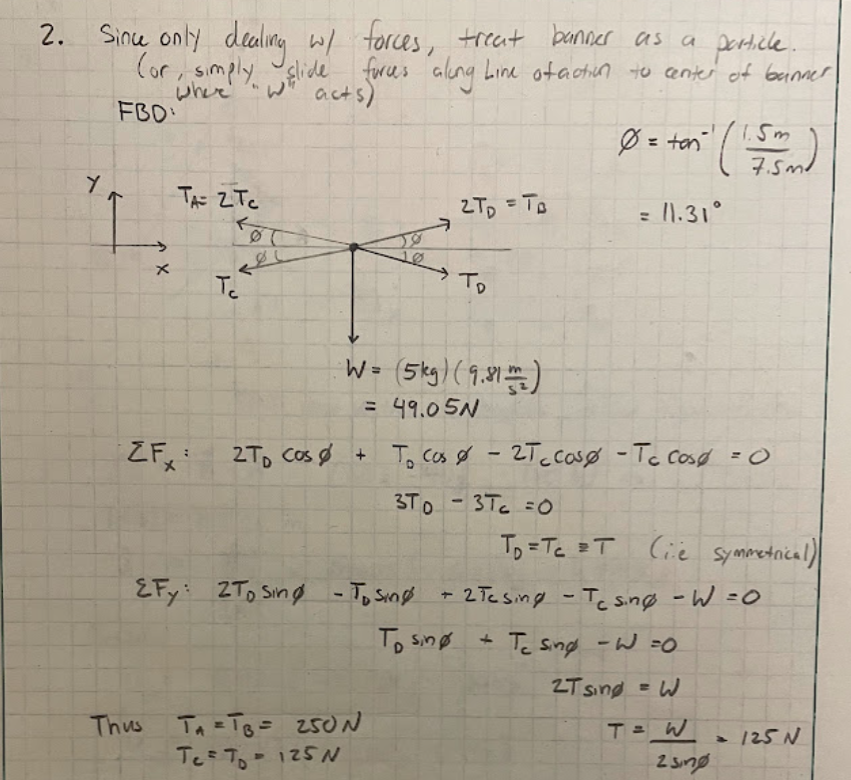 2. Since only dealing w/ forces, treat banner as a particle.
(or, simply slide forces along line of action to center of banner
where "W" acts)
FBD:
Ø = tan⁻¹ (1.5m / 7.5m)
= 11.31°
Y
X
T_A = 2T_C
2T_D = T_B
Ø
Ø
Ø
Ø
T_C
T_D
W = (5kg)(9.81 m/s²)
= 49.05N
ΣF_x: 2T_D cosØ + T_D cosØ - 2T_C cosØ - T_C cosØ = 0
3T_D - 3T_C = 0
T_D = T_C ≡ T (i.e symmetrical)
ΣF_y: 2T_D sinØ - T_D sinØ + 2T_C sinØ - T_C sinØ - W = 0
T_D sinØ + T_C sinØ - W = 0
2T sinØ = W
T = W / 2 sinØ = 125 N
Thus T_A = T_B = 250 N
T_C = T_D = 125 N